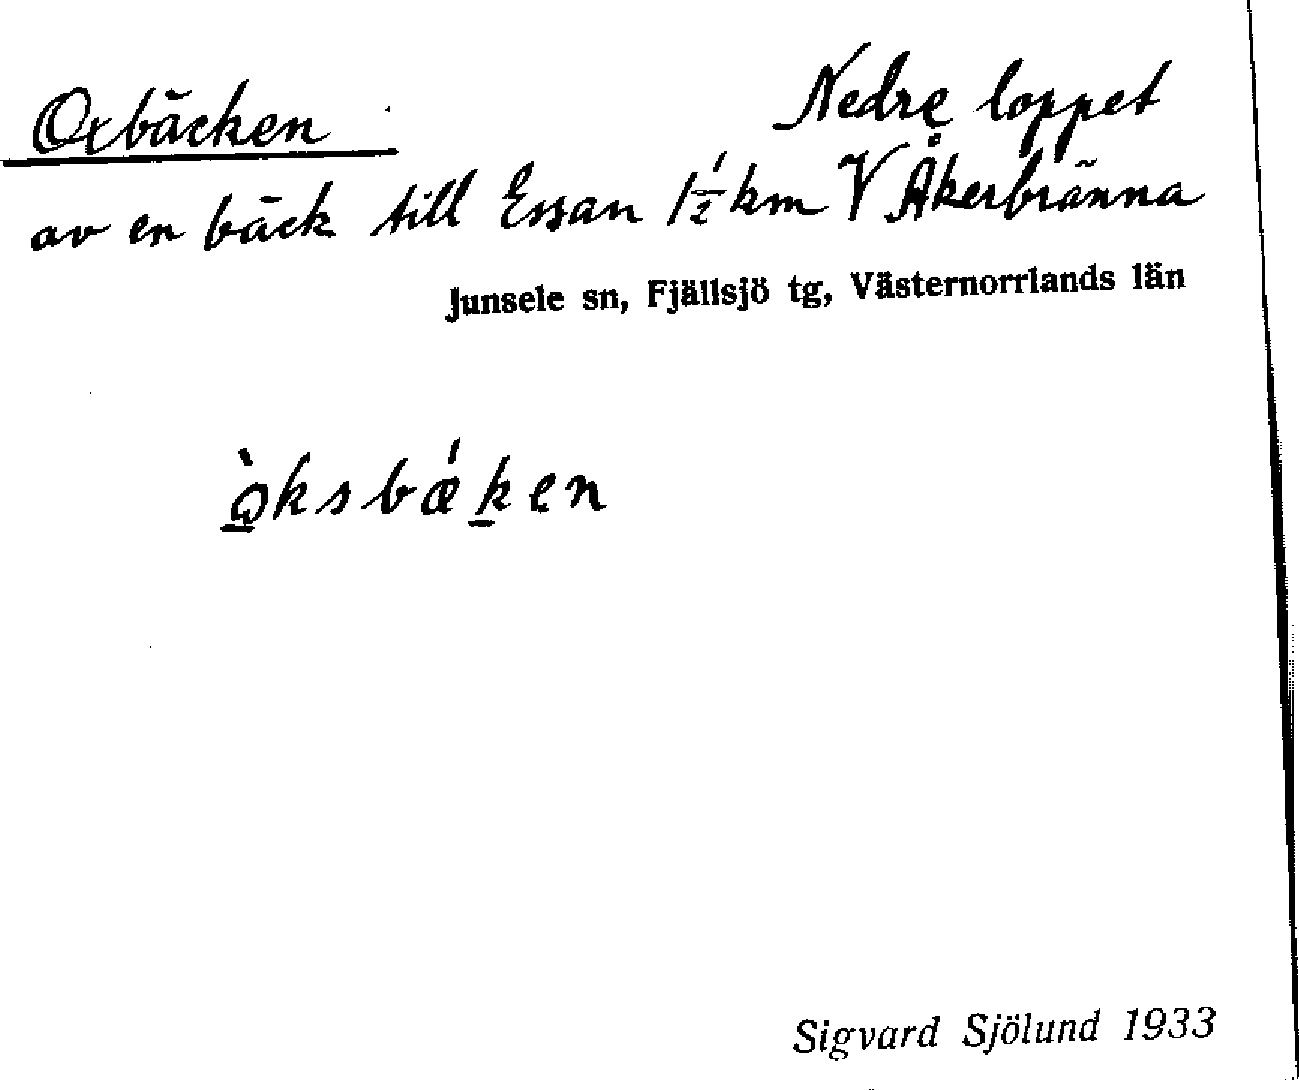 Oxbäcken Nedre loppet
av en bäck till Essan 1½ km V Åkerbränna
Junsele sn, Fjällsjö tg, Västernorrlands län
ò̠ksbǽk̠en
Sigvard Sjölund 1933